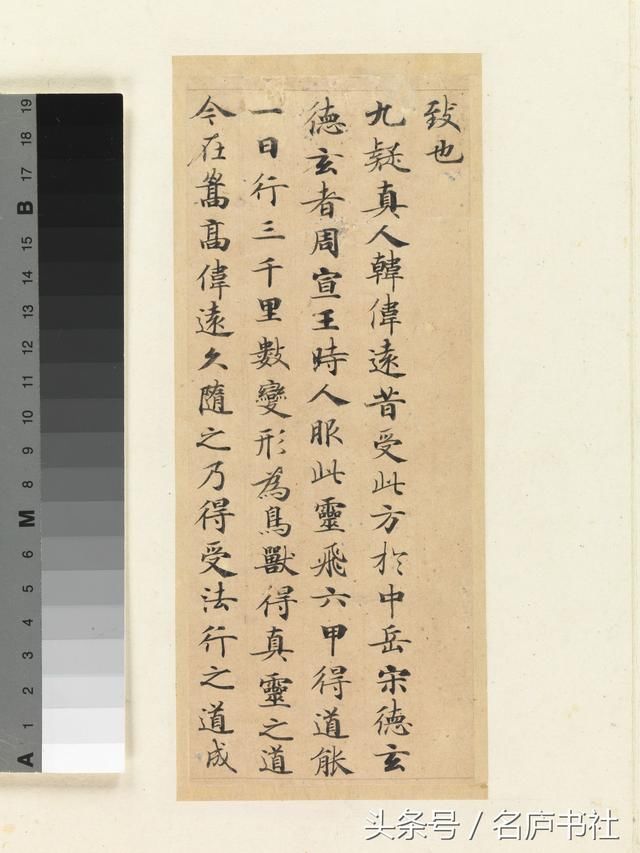 致也
九疑真人韓偉遠昔受此方於中岳宋德玄
德玄者周宣王時人服此靈飛六甲得道能
一日行三千里數變形為鳥獸得真靈之道
今在嵩高偉遠久隨之乃得受法行之道成
19
18
17
B
15
14
13
12
11
10
9
8
M
6
5
4
3
2
1
A
头条号 / 名庐书社